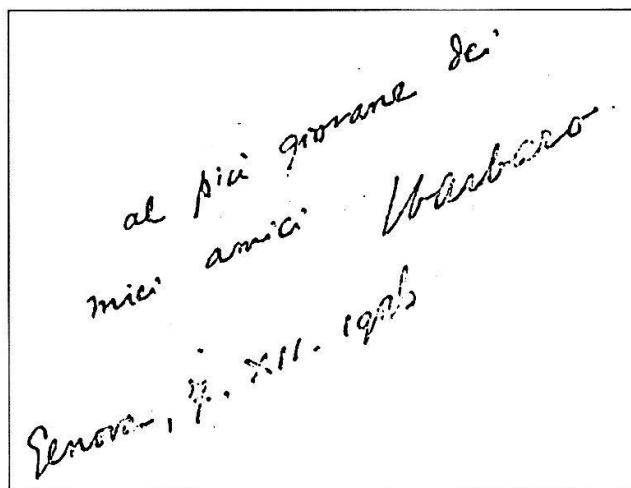 al più giovane dei
miei amici Ubarbaro
Genova, 7. XII. 1926